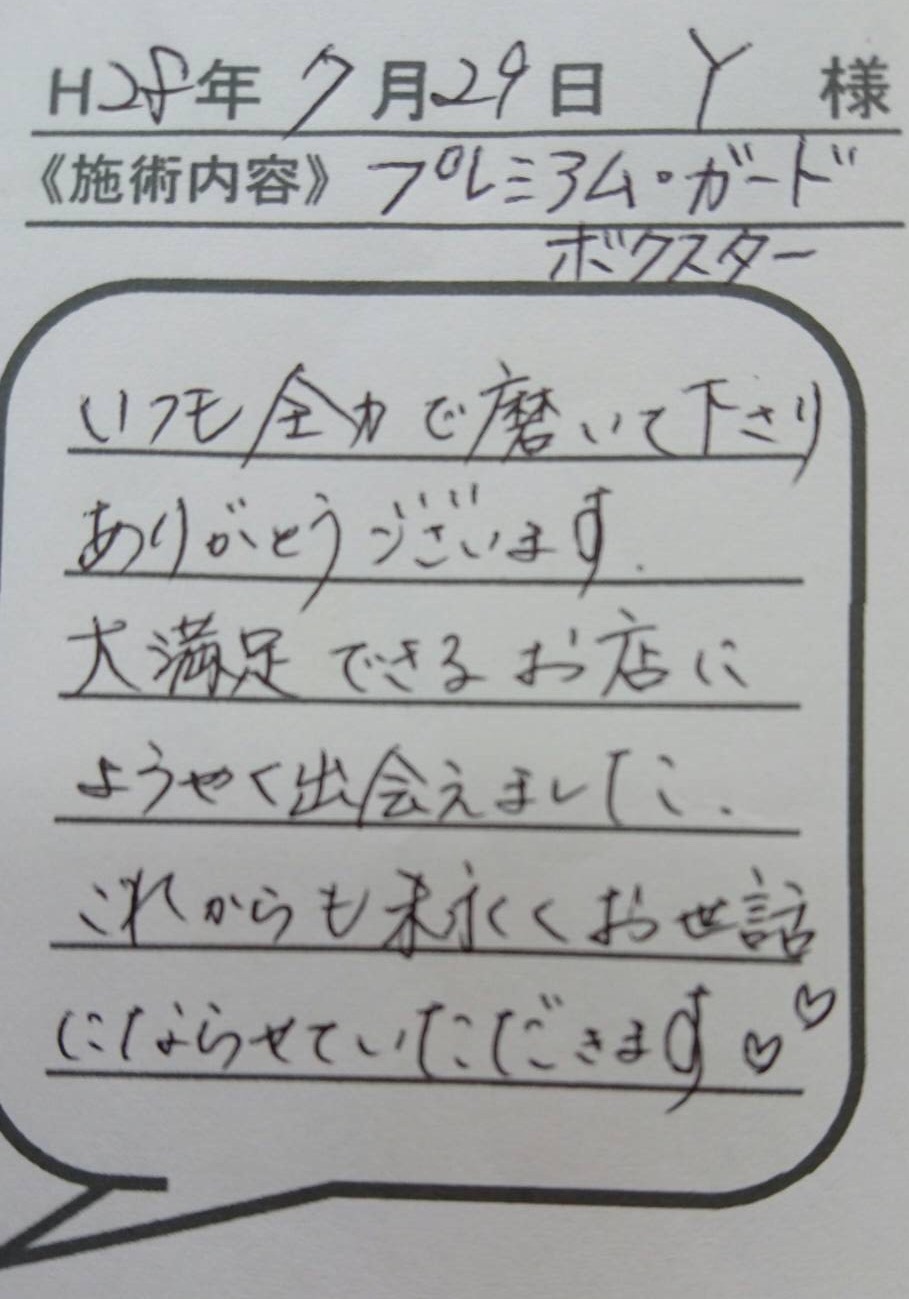 H28年 7月29日 Y 様
《施術内容》プレミアム・ガード
ボクスター
いつも全力で磨いて下さり
ありがとうございます.
大満足できるお店に
ようやく出会えました.
これからも末永くお世話
にならせていただきます♡♡